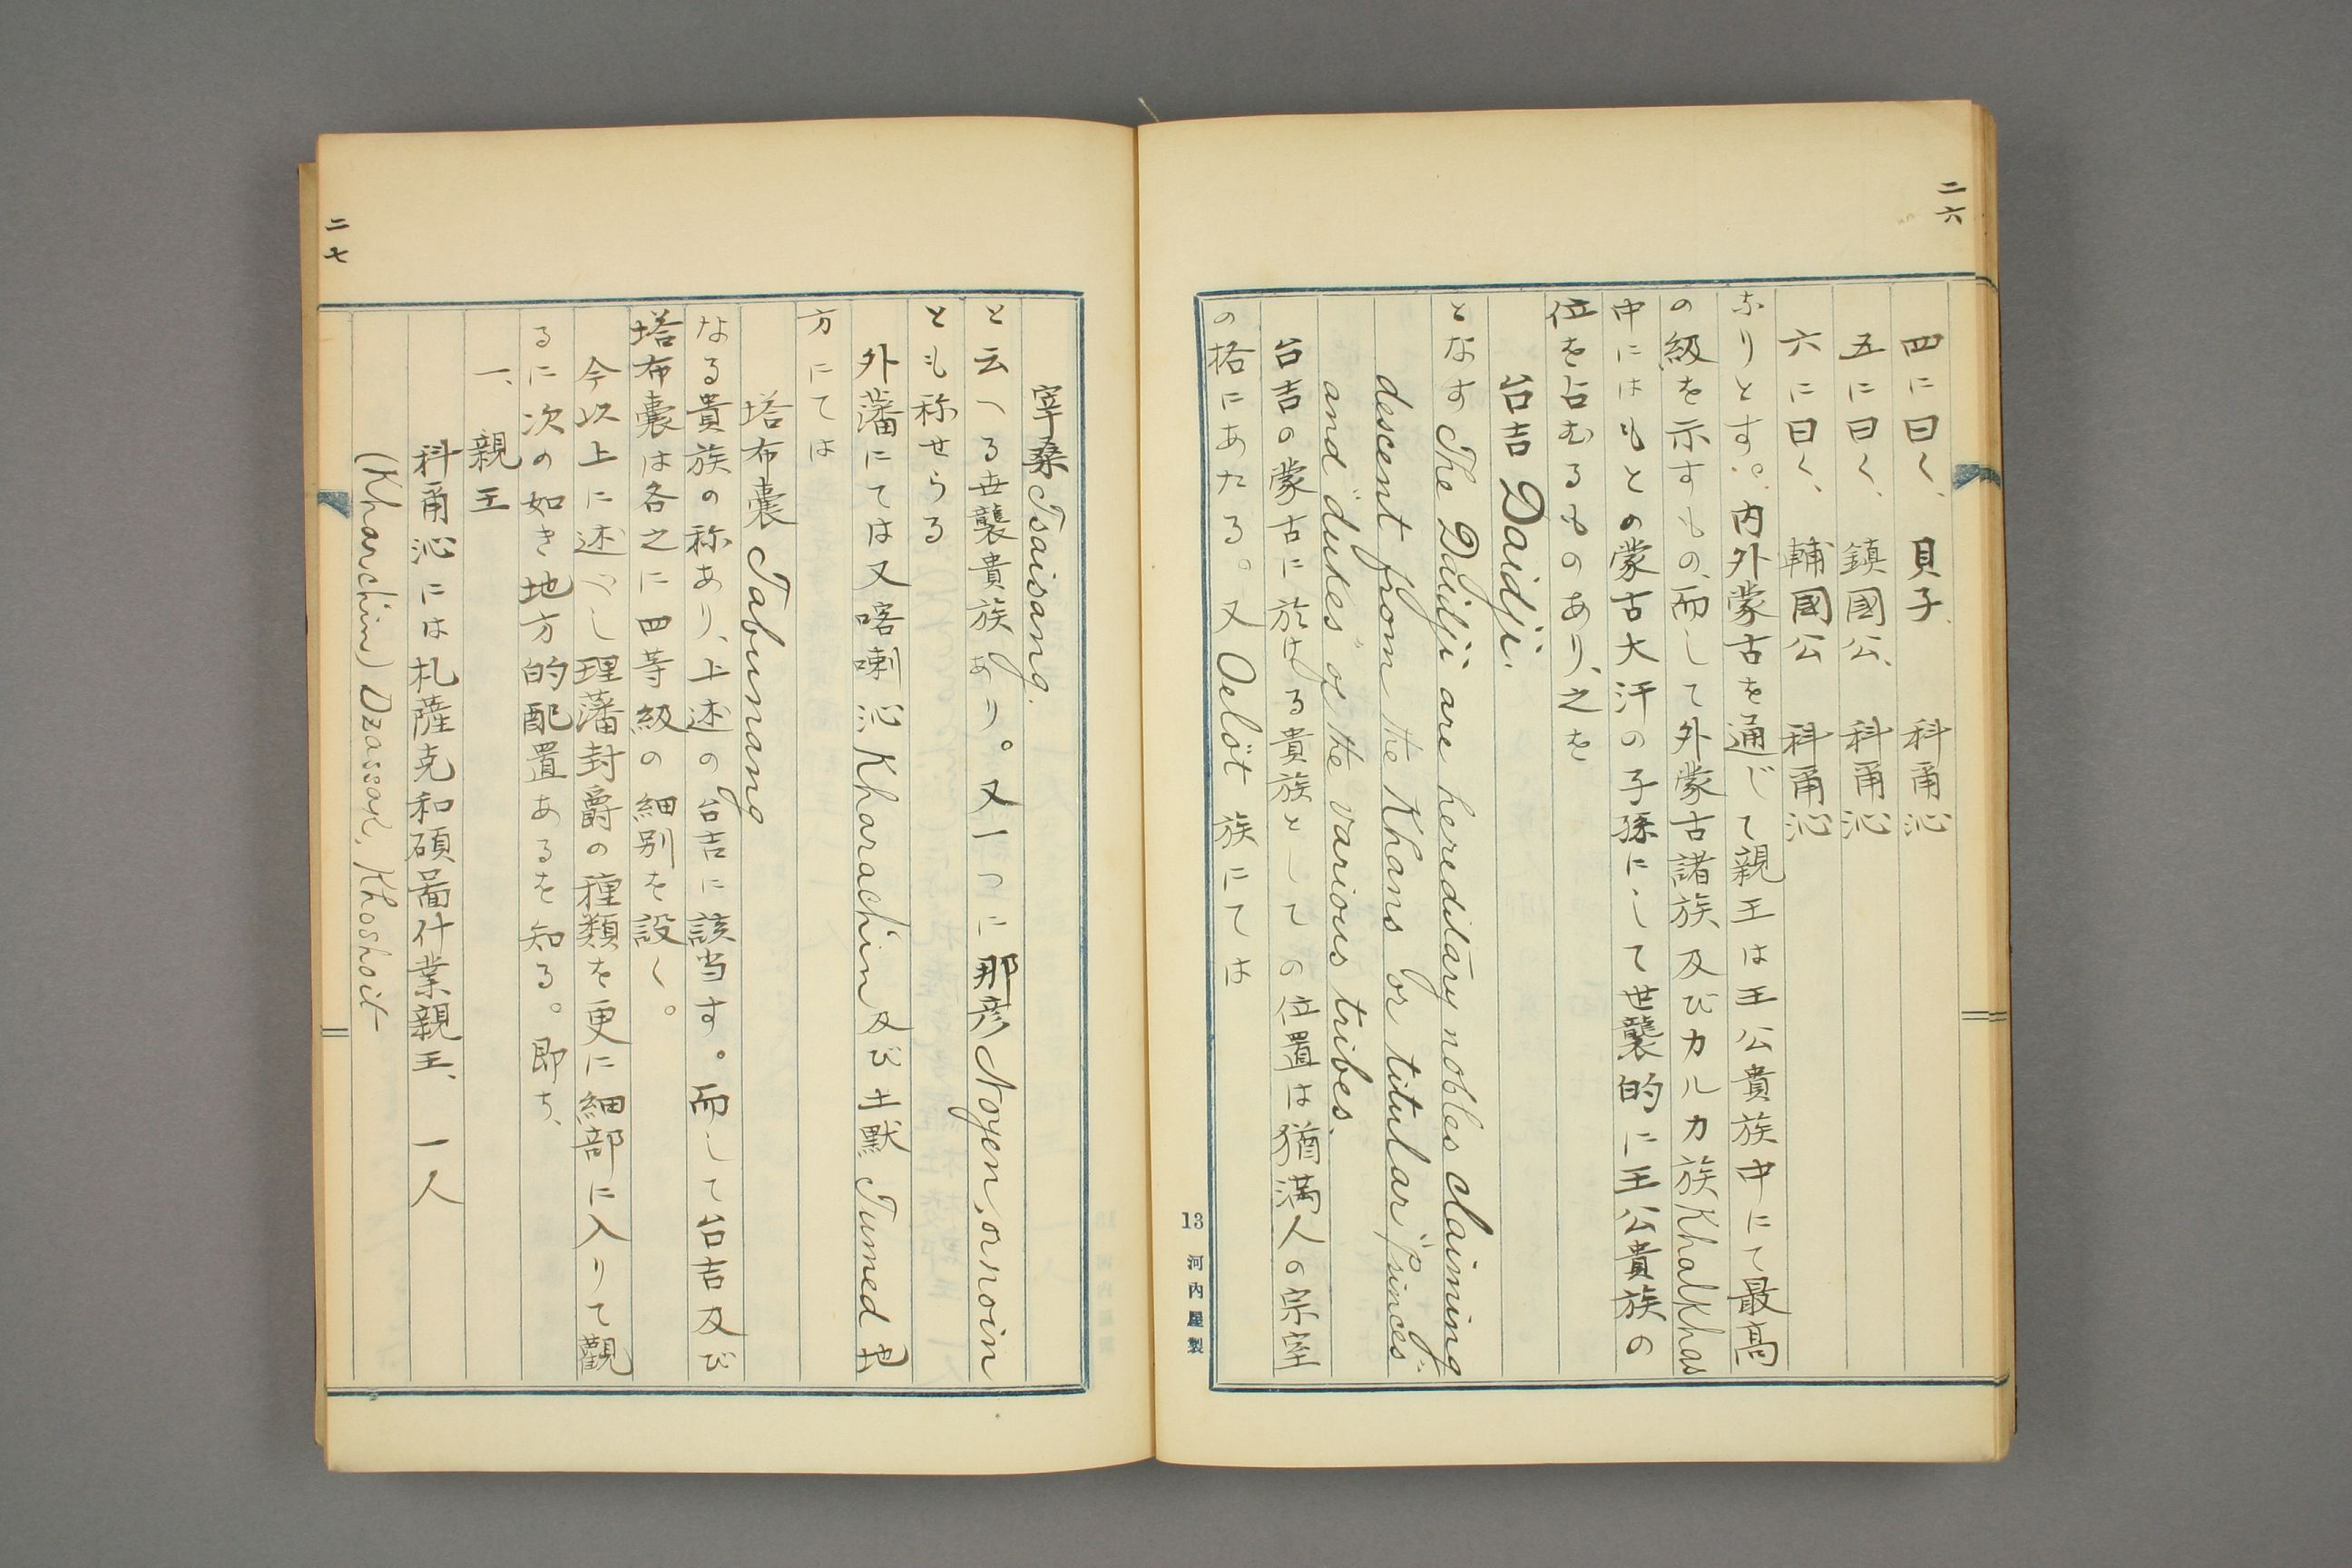 二六
四に曰く、貝子、科爾沁
五に曰く、鎮國公、科爾沁
六に曰く、輔國公 科爾沁
なりとす。内外蒙古を通じて親王は王公貴族中にて最高
の級を示すもの、而して外蒙古諸族及びカルカ族Khalkhas
中にはもとの蒙古大汗の子孫にして世襲的に王公貴族の
位を占むるものあり、之を
台吉 Daidji.
となす The Daidji are hereditary nobles claiming
descent from the Khans or titular "princes"
and "dukes" of the various tribes.
台吉の蒙古に於ける貴族としての位置は猶満人の宗室
の格にあたる。又Oelöt 族にては
13 河内屋製
二七
宰桑 Tsaisang.
と云へる世襲貴族あり。又一つに那彦 Noyen, or noin
とも称せらる
外藩にては又喀喇沁 Kharachin 及び土默 Tumed 地
方にては
塔布囊 Tabunang
なる貴族の称あり、上述の台吉に該当す。而して台吉及び
塔布囊は各之に四等級の細別を設く。
今以上に述べし理藩封爵の種類を更に細部に入りて觀
るに次の如き地方的配置あるを知る。即ち、
一、親王
科爾沁には札薩克和碩啚什業親王、一人
(Kharchin) Dzassak, Khoshoit